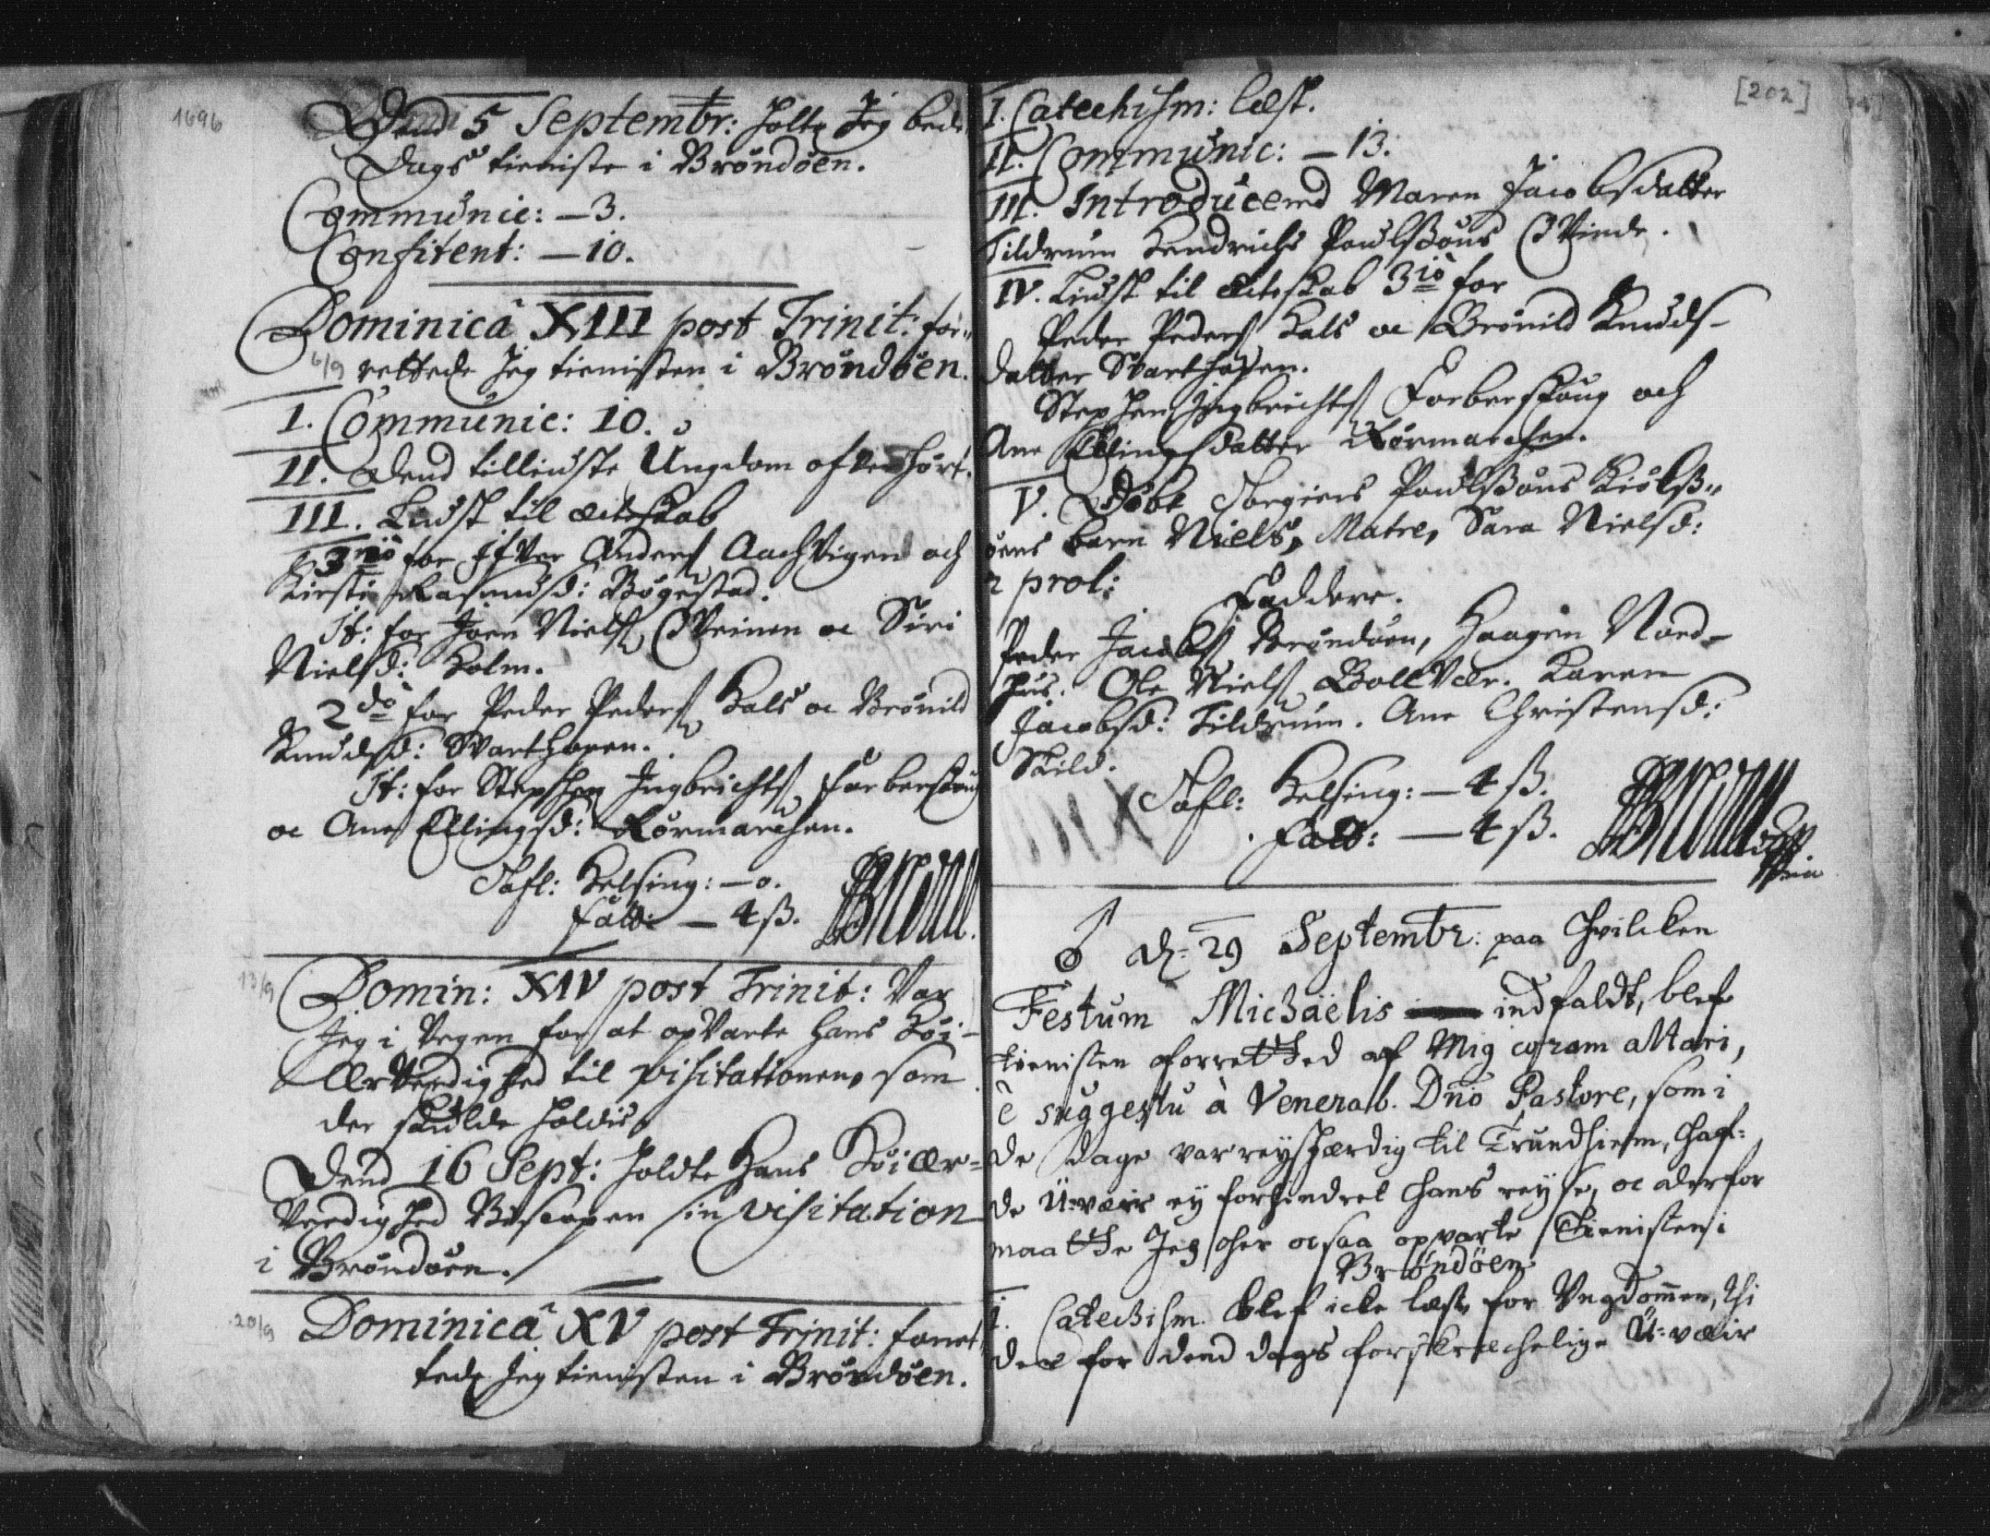 1696
Dend 5 Septembr: holte Jeg bede
Dags tieniste i Brøndøen.
Communic: — 3.
Confitent: — 10.
Dominicâ XIII post Trinit: for-
6/9 rettede Jeg tienisten i Brøndøen.
I. Communic: 10.
II. Dend tilliuste Ungdom ofverhørt.
III. Liust til æcteskab
3tiò for Ifver Anders Aachvigen och
Kirsti Rasmusd: Bøgestad.
It: for Joen Niels Qveinen oc Siri
Nielsd: Holm.
2dò for Peder Peders Hals oc Brønild
Knudsd: Svarthopen.
It: for Stephen Ingbrichts Farberskoug
oc Ane Ellingsd: Rørmarchen.
Tafl: Helsing: — 0.
Fatt: — 4 ß.
13/9 Domin: XIV post Trinit: Var
Jeg i Vegen for at opvarte Hans Høi-
Ærverdighed til Visitationen, som
der skulde holdis,
Dend 16 Sept: holdte Hans Høiær-
verdighed Biscopen sin Visitation
i Brøndøen.
20/9 Dominicâ XV post Trinit: foret-
tede Jeg tienisten i Brøndøen.
[202]
I. Catechism: læst.
II. Communic: — 13.
III. Introducered Maren Jacobsdatter
Tildrum Hendrichs Poulsßøns Qvinde.
IV. Liust til æcteskab 3iò for
Peder Peders Hals oc Brønild Knuds-
datter Svarthopen.
Stephen Ingbrichts Forberskoug och
Ane Ellingsdatter Rørmarchen.
V. Døbt Torgiers Poulsßøns Kiølß-
øens barn Niels, Matre, Sara Nielsd:
2 prol:
Faddere.
Peder Jacobs Brøndøen, Haagen Nord-
hus. Ole Niels Bolvær. Karen
Jacobsd: Tildrum. Ane Christensd:
Skild.
Tafl: Helsing: — 4 ß.
Fatt: — 4 ß.
♂ d. 29 Septembr: paa Hvilcken
Festum Michaëlis indfaldt, blef
tienisten forretted af Mig coram altari,
è suggestu à Venerab. Dno Pastore, som i
de dage var reyshærdig til Trundhiem, haf-
de U-væir ey forhindret hans reyse, oc derfor
maatte Jeg her ocsaa opvarte tienisten i
Brøndöen
I. Catechism. blef icke læst for Ungdommen, thi
der for dend dags forskrechelige U-væir